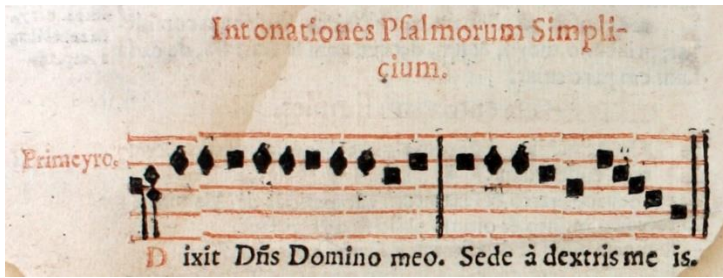 Intonationes Psalmorum Simpli-
çium.
Primeyro.
D ixit Dn̄s Domino meo. Sede à dextris me is.